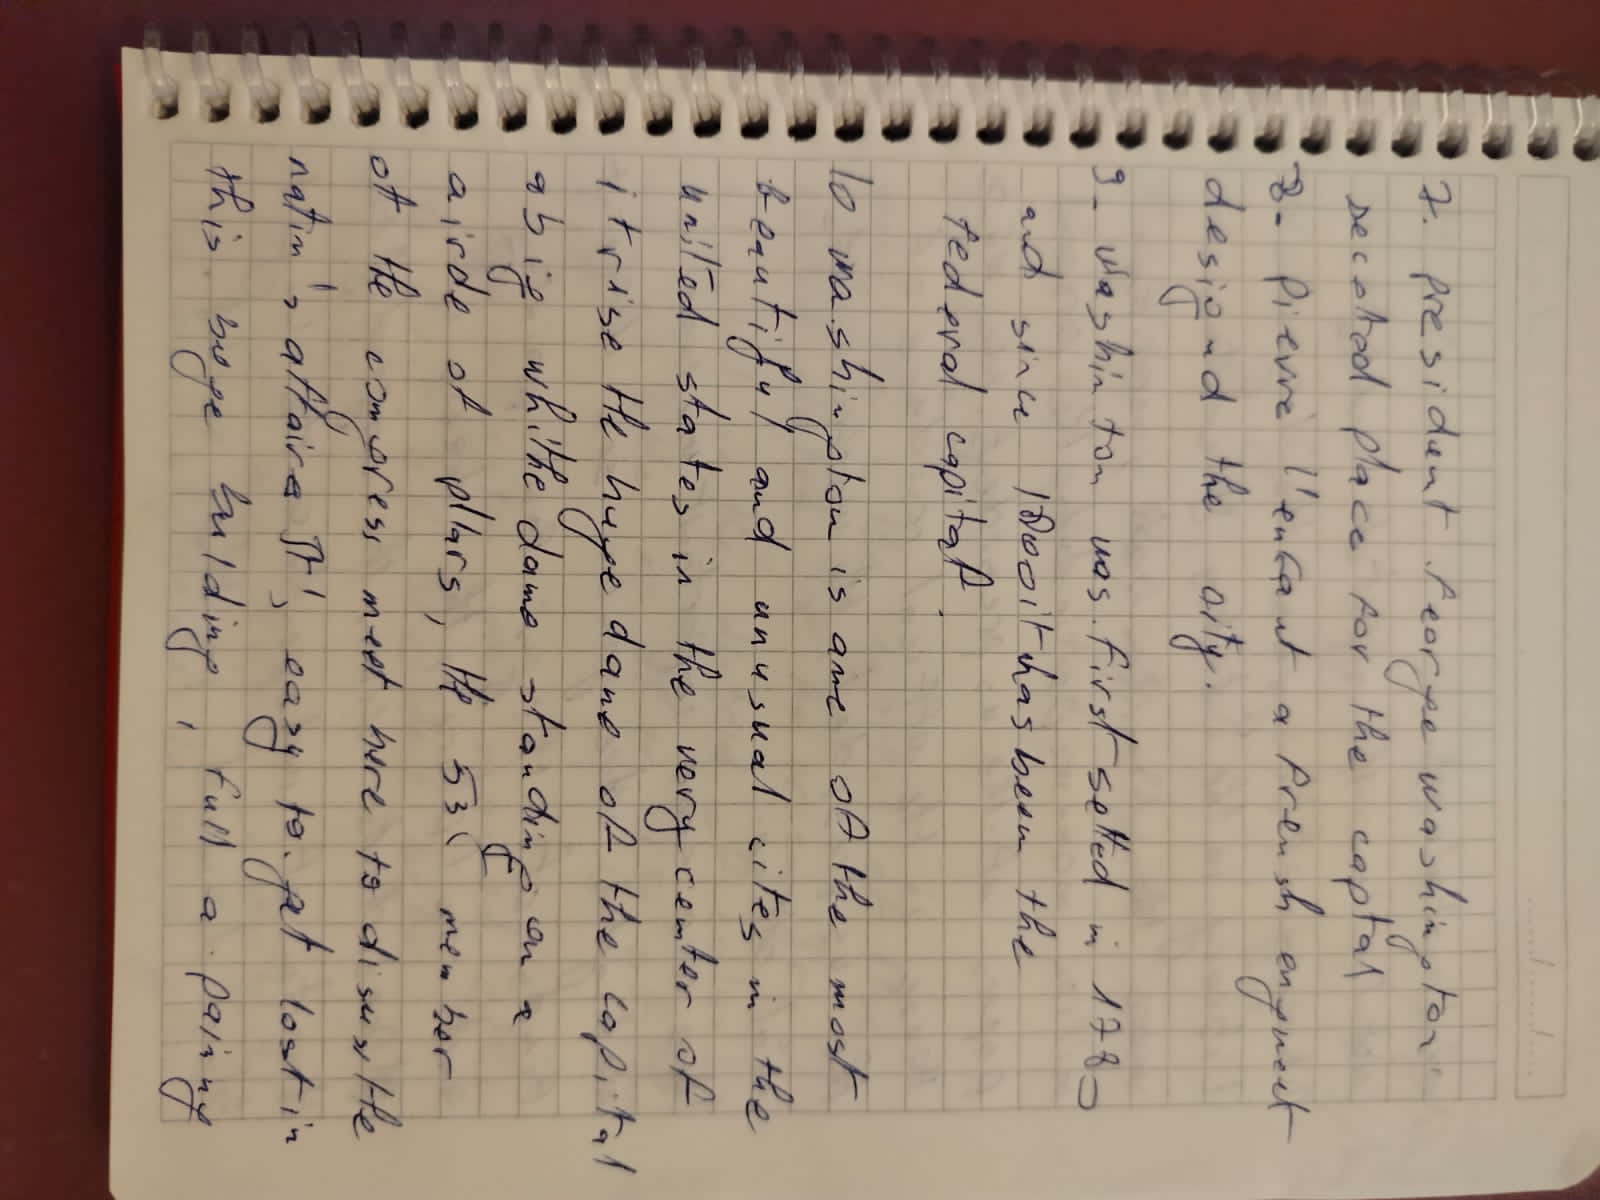 7. president george washington
secoted place for the captal
8- pierre l'enfant a french engment
designd the city.
9- washin ton was first setted in 1780
and since 1800 it has been the
federal capital.
10 washington is ane of the most
beautiful and unusual cites in the
united states in the very center of
it rise the huge dane of the capital
a big white dame standing on a
airde of pllars, the 53 member
of the congress meet here to disuss the
natin's affairs It's easy to get lost in
this huge building, full a paliny